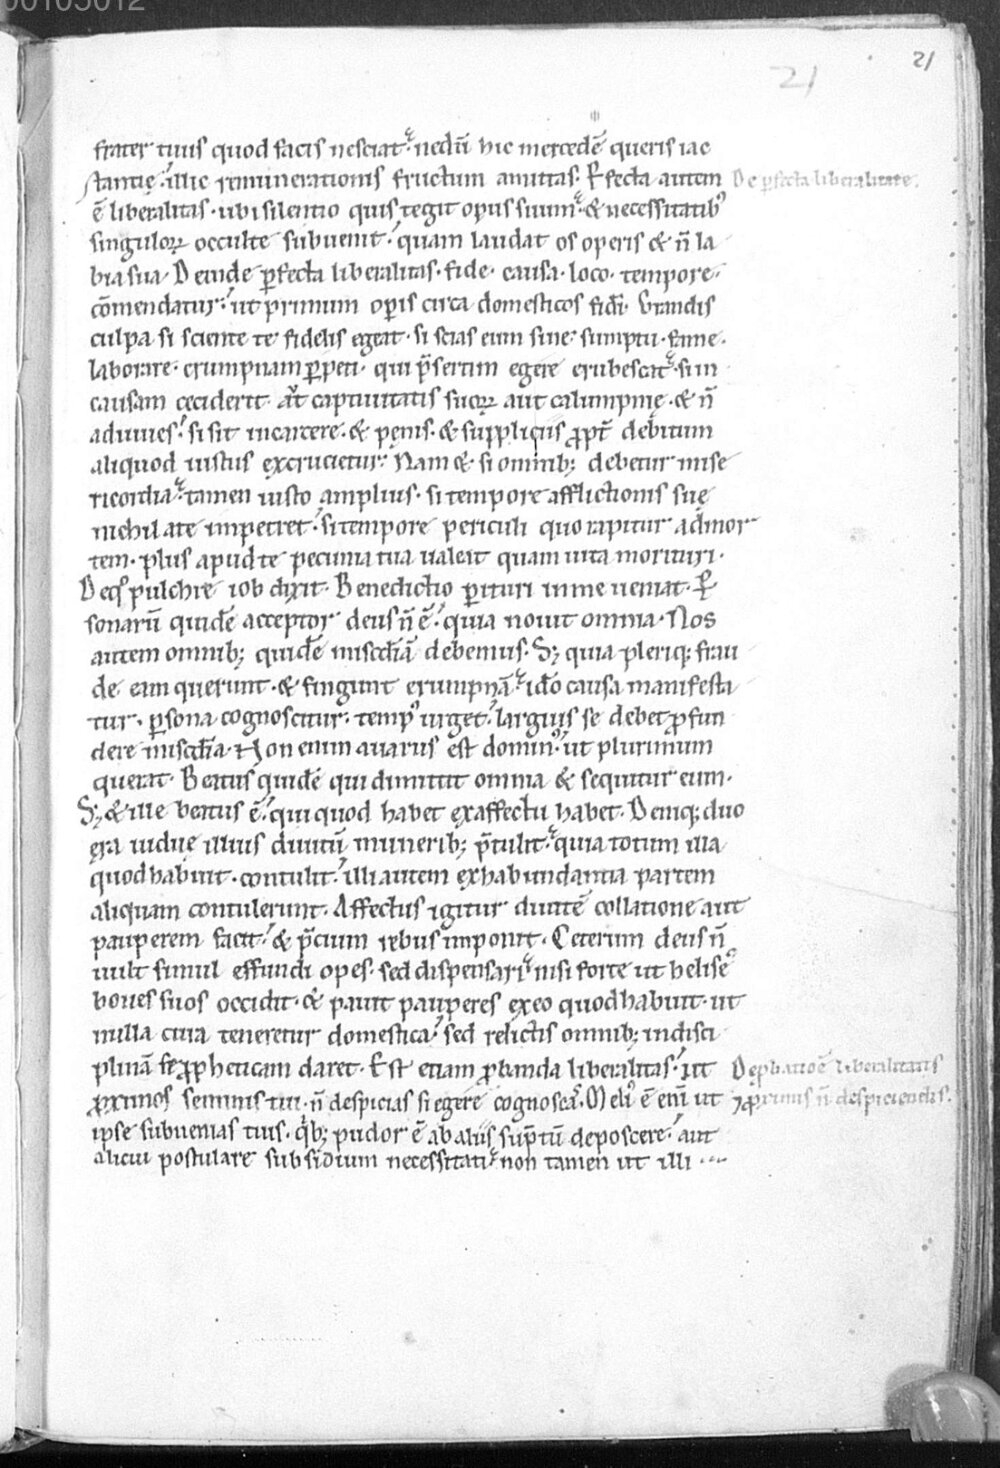 00105012
21
21
frater tuus quod facis nesciat. nedū hic mercedē queris iac
stantię. illic remunerationis fructum amittas. Pfecta autem
De pfecta liberalitate.
ē liberalitas. ubi silentio quis tegit opus suum. & necessitatib;
singuloꝝ occulte subuenit. quam laudat os operis & n̄ la
bia sua. Deinde pfecta liberalitas. fide. causa. loco. tempore.
cōmendatur. ut primum opis circa domesticos fidei. Grandis
culpa si sciente te fidelis egeat. si scias eum sine sumptu. fame.
laborare. erumpnam ppeti. qui p̄sertim egere erubescat. si in
causam ceciderit aut captiuitatis suoꝝ aut calumpnię. & n̄
adiuues. si sit in carcere. & pęnis. & suppliciis ꝓpt̄ debitum
aliquod iustus excrucietur. Nam & si omnib; debetur mise
ricordia. tamen iusto amplius. si tempore afflictionis suę
nichil a te impetret. si tempore periculi quo rapitur ad mor
tem. plus apud te pecunia tua ualeat quam uita morituri.
De q° pulchre iob dixit. Benedictio pituri in me ueniat. P
sonarū quidē acceptor deus n̄ ē. quia nouit omnia. Nos
autem omnib; quidē misc̄diā debemus. S; quia pleriq; frau
de eam querunt. & fingunt erumpnā. idō causa manifesta
tur. psona cognoscitur. temp' urget. largius se debet ꝓfun
dere misc̄dia. Non enim auarus est domin'. ut plurimum
querat. Beatus quidē qui dimittit omnia & sequitur eum.
S; & ille beatus ē. qui quod habet ex affectu habet. Deniq; duo
ęra uiduę illius diuitū munerib; p̄tulit. quia totum illa
quod habuit. contulit. illi autem ex habundantia partem
aliquam contulerunt. Affectus igitur diuitē collatione aut
pauperem facit. & p̄cium rebus imponit. Ceterum deus n̄
uult simul effundi opes. sed dispensari. nisi forte ut heliseꝰ
boues suos occidit. & pauit pauperes ex eo quod habuit. ut
nulla cura teneretur domestica. sed relictis omnib; in disci
plinā se ꝓpheticam daret. Est etiam ꝓbanda liberalitas. ut
De ꝓbatioē liberalitatis
ꝓximos seminis tui. n̄ despicias si egere cognoscas. Meli' ē eni ut
⁊ ꝓximis n̄ despiciendis.
ipse subuenias tuis. qb; pudor ē ab aliis sūptū deposcere. aut
alicui postulare subsidium necessitati. non tamen ut illi